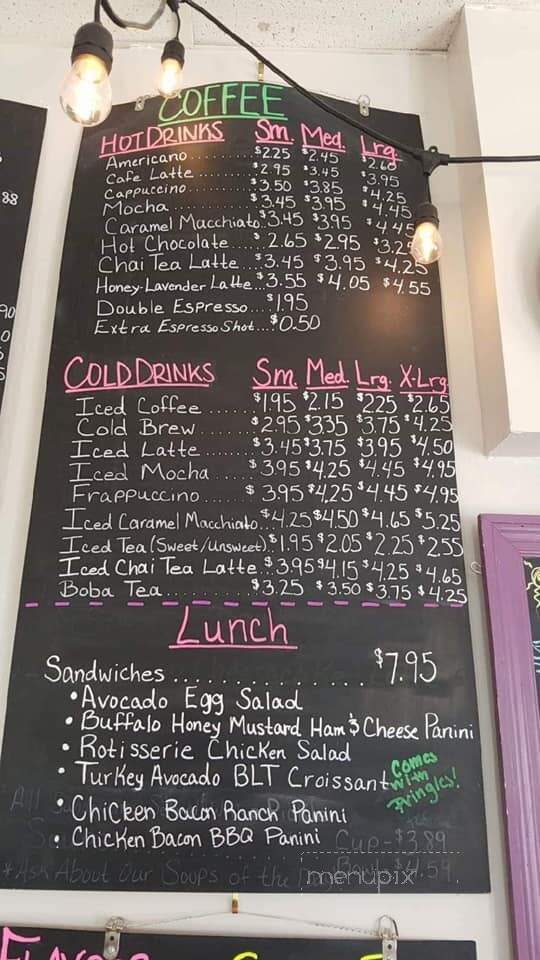 COFFEE
HOT DRINKS Sm. Med. Lrg.
Americano ........ $2.25 $2.45 $2.60
Cafe Latte ....... $2.95 $3.45 $3.95
Cappuccino ....... $3.50 $3.85 $4.25
Mocha ........ $3.45 $3.95 $4.45
Caramel Macchiato.. $3.45 $3.95 $4.45
Hot Chocolate .... $2.65 $2.95 $3.25
Chai Tea Latte ...$3.45 $3.95 $4.25
Honey-Lavender Latte..$3.55 $4.05 $4.55
Double Espresso....$1.95
Extra Espresso Shot...$0.50
COLD DRINKS Sm. Med. Lrg. X-Lrg.
Iced Coffee ...... $1.95 $2.15 $2.25 $2.65
Cold Brew ....... $2.95 $3.35 $3.75 $4.25
Iced Latte ....... $3.45 $3.75 $3.95 $4.50
Iced Mocha ..... $3.95 $4.25 $4.45 $4.95
Frappuccino ..... $3.95 $4.25 $4.45 $4.95
Iced Caramel Macchiato..$4.25 $4.50 $4.65 $5.25
Iced Tea (Sweet/Unsweet).$1.95 $2.05 $2.25 $2.55
Iced Chai Tea Latte.$3.95 $4.15 $4.25 $4.65
Boba Tea.......... $3.25 $3.50 $3.75 $4.25
Lunch
Sandwiches ............... $7.95
• Avocado Egg Salad
• Buffalo Honey Mustard Ham & Cheese Panini
• Rotisserie Chicken Salad
• Turkey Avocado BLT Croissant
Comes
with
Pringles!
• Chicken Bacon Ranch Panini
• Chicken Bacon BBQ Panini
Cup-$3.89
*Ask About Our Soups of the Day Bowl $4.59
menupix
88
90